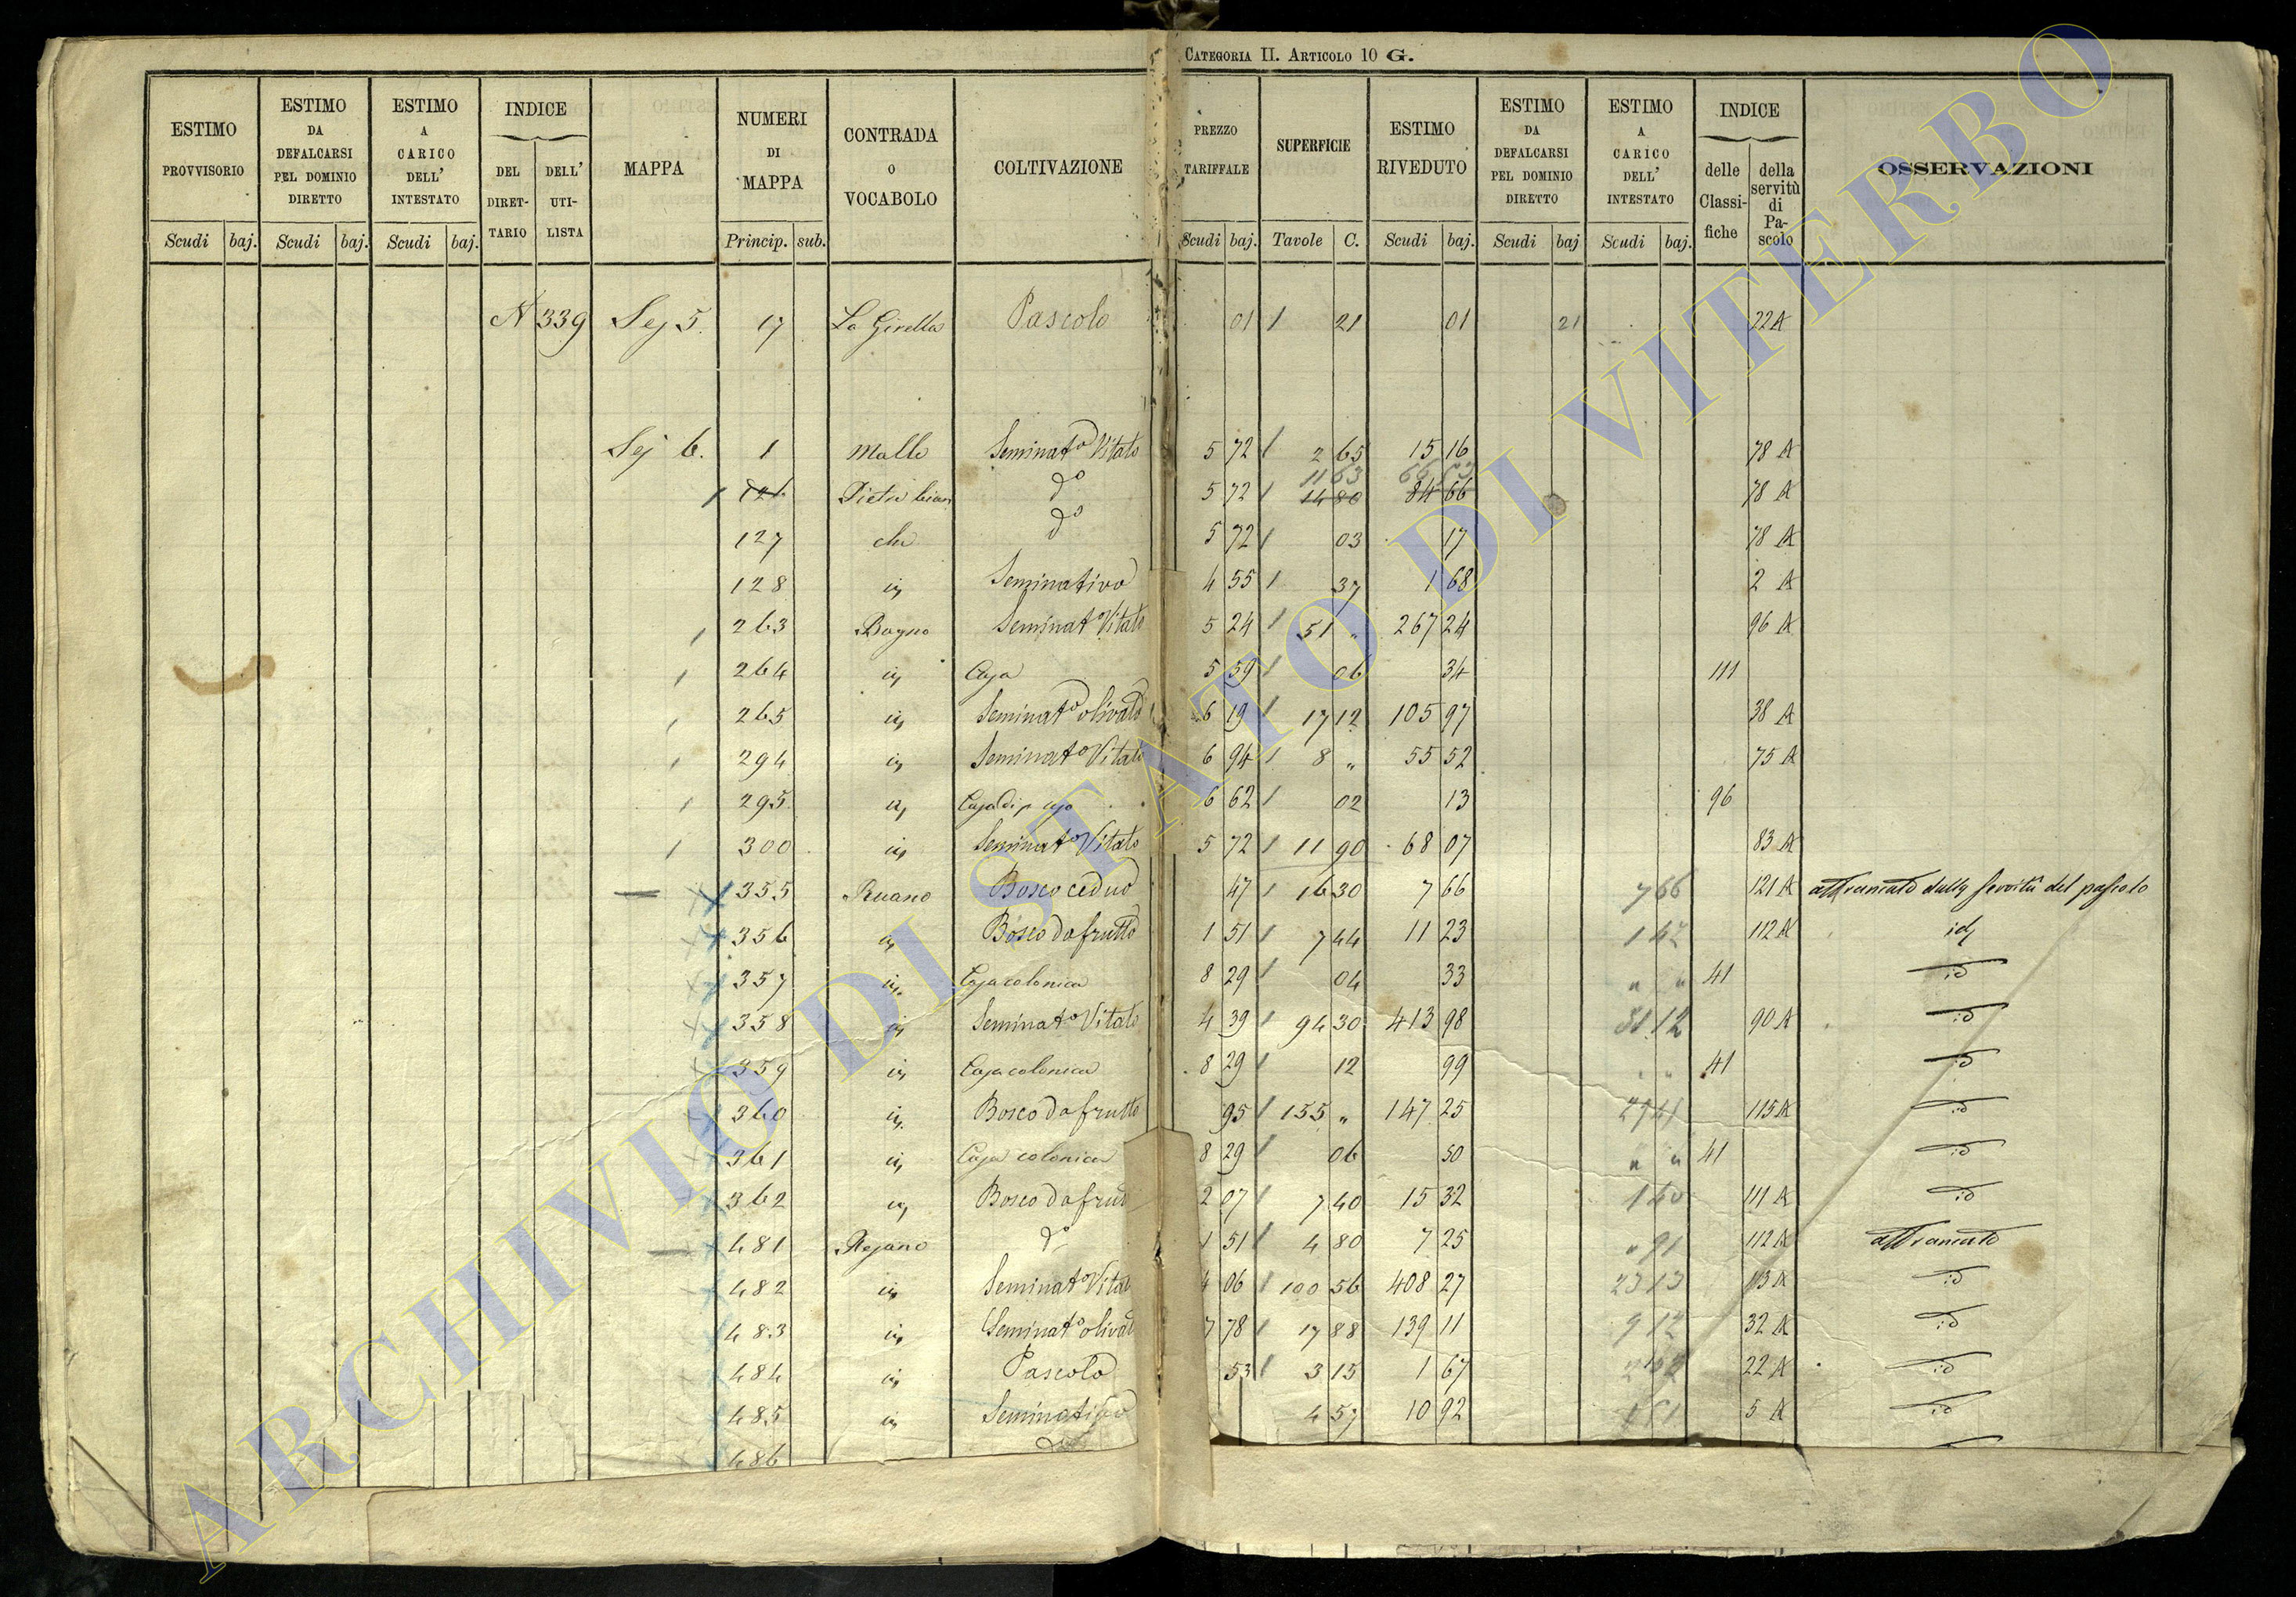 CATEGORIA II. ARTICOLO 10 G.
ESTIMO PROVVISORIO Scudi baj.
ESTIMO DA DEFALCARSI PEL DOMINIO DIRETTO Scudi baj.
ESTIMO A CARICO DELL' INTESTATO Scudi baj.
INDICE DEL DIRET-TARIO DELL' UTI-LISTA
MAPPA
NUMERI DI MAPPA Princip. sub.
CONTRADA O VOCABOLO
COLTIVAZIONE
PREZZO TARIFFALE Scudi baj.
SUPERFICIE Tavole C.
ESTIMO RIVEDUTO Scudi baj.
ESTIMO DA DEFALCARSI PEL DOMINIO DIRETTO Scudi baj
ESTIMO A CARICO DELL' INTESTATO Scudi baj.
INDICE delle Classi-fiche della servitù di Pa-scolo
OSSERVAZIONI
339 Sez 5. 17 La Girella Pascolo 01 21 01 21 22 A
Sez 6. 1 Malle Seminat° Vitato 5 72 2 65 15 16 78 A
11 63
126 Pietra bian d° 5 72 14 80 84 66 78 A
127 ca d° 5 72 03 17 78 A
128 id Seminativo 4 55 37 1 68 2 A
263 Bagno Seminat° Vitato 5 24 51 " 267 24 96 A
264 id Casa 5 59 06 34 111
265 id Seminat° olivato 6 19 17 12 105 97 38 A
294 id Seminat° Vitato 6 94 8 " 55 52 75 A
295 id Casa di p uso 6 62 02 13 96
300 id Seminat° Vitato 5 72 11 90 68 07 83 A
355 Ruano Bosco ceduo 47 16 30 7 66 7 66 121 A affrancato dalla servitù del pascolo
356 id Bosco da frutto 1 51 7 44 11 23 1 42 112 A id
357 id Casa colonica 8 29 04 33 " " 41 id
358 id Seminat° Vitato 4 39 94 30 413 98 12 90 A id
359 id Casa colonica 8 29 12 99 " " 41 id
360 id Bosco da frutto 95 155 " 147 25 115 A id
361 id Casa colonica 8 29 06 50 " " 41 id
362 id Bosco da frut 2 07 7 40 15 32 1 60 111 A id
481 Rejano d° 1 51 4 80 7 25 " 91 112 A affrancato
482 id Seminat° Vitat 4 06 100 56 408 27 23 13 A id
483 id Seminat° olivat 7 78 17 88 139 11 9 12 32 A id
484 id Pascolo 53 3 15 1 67 22 A id
485 id Seminativo 4 57 10 92 5 A id
486 d°
ARCHIVIO DI STATO DI VITERBO